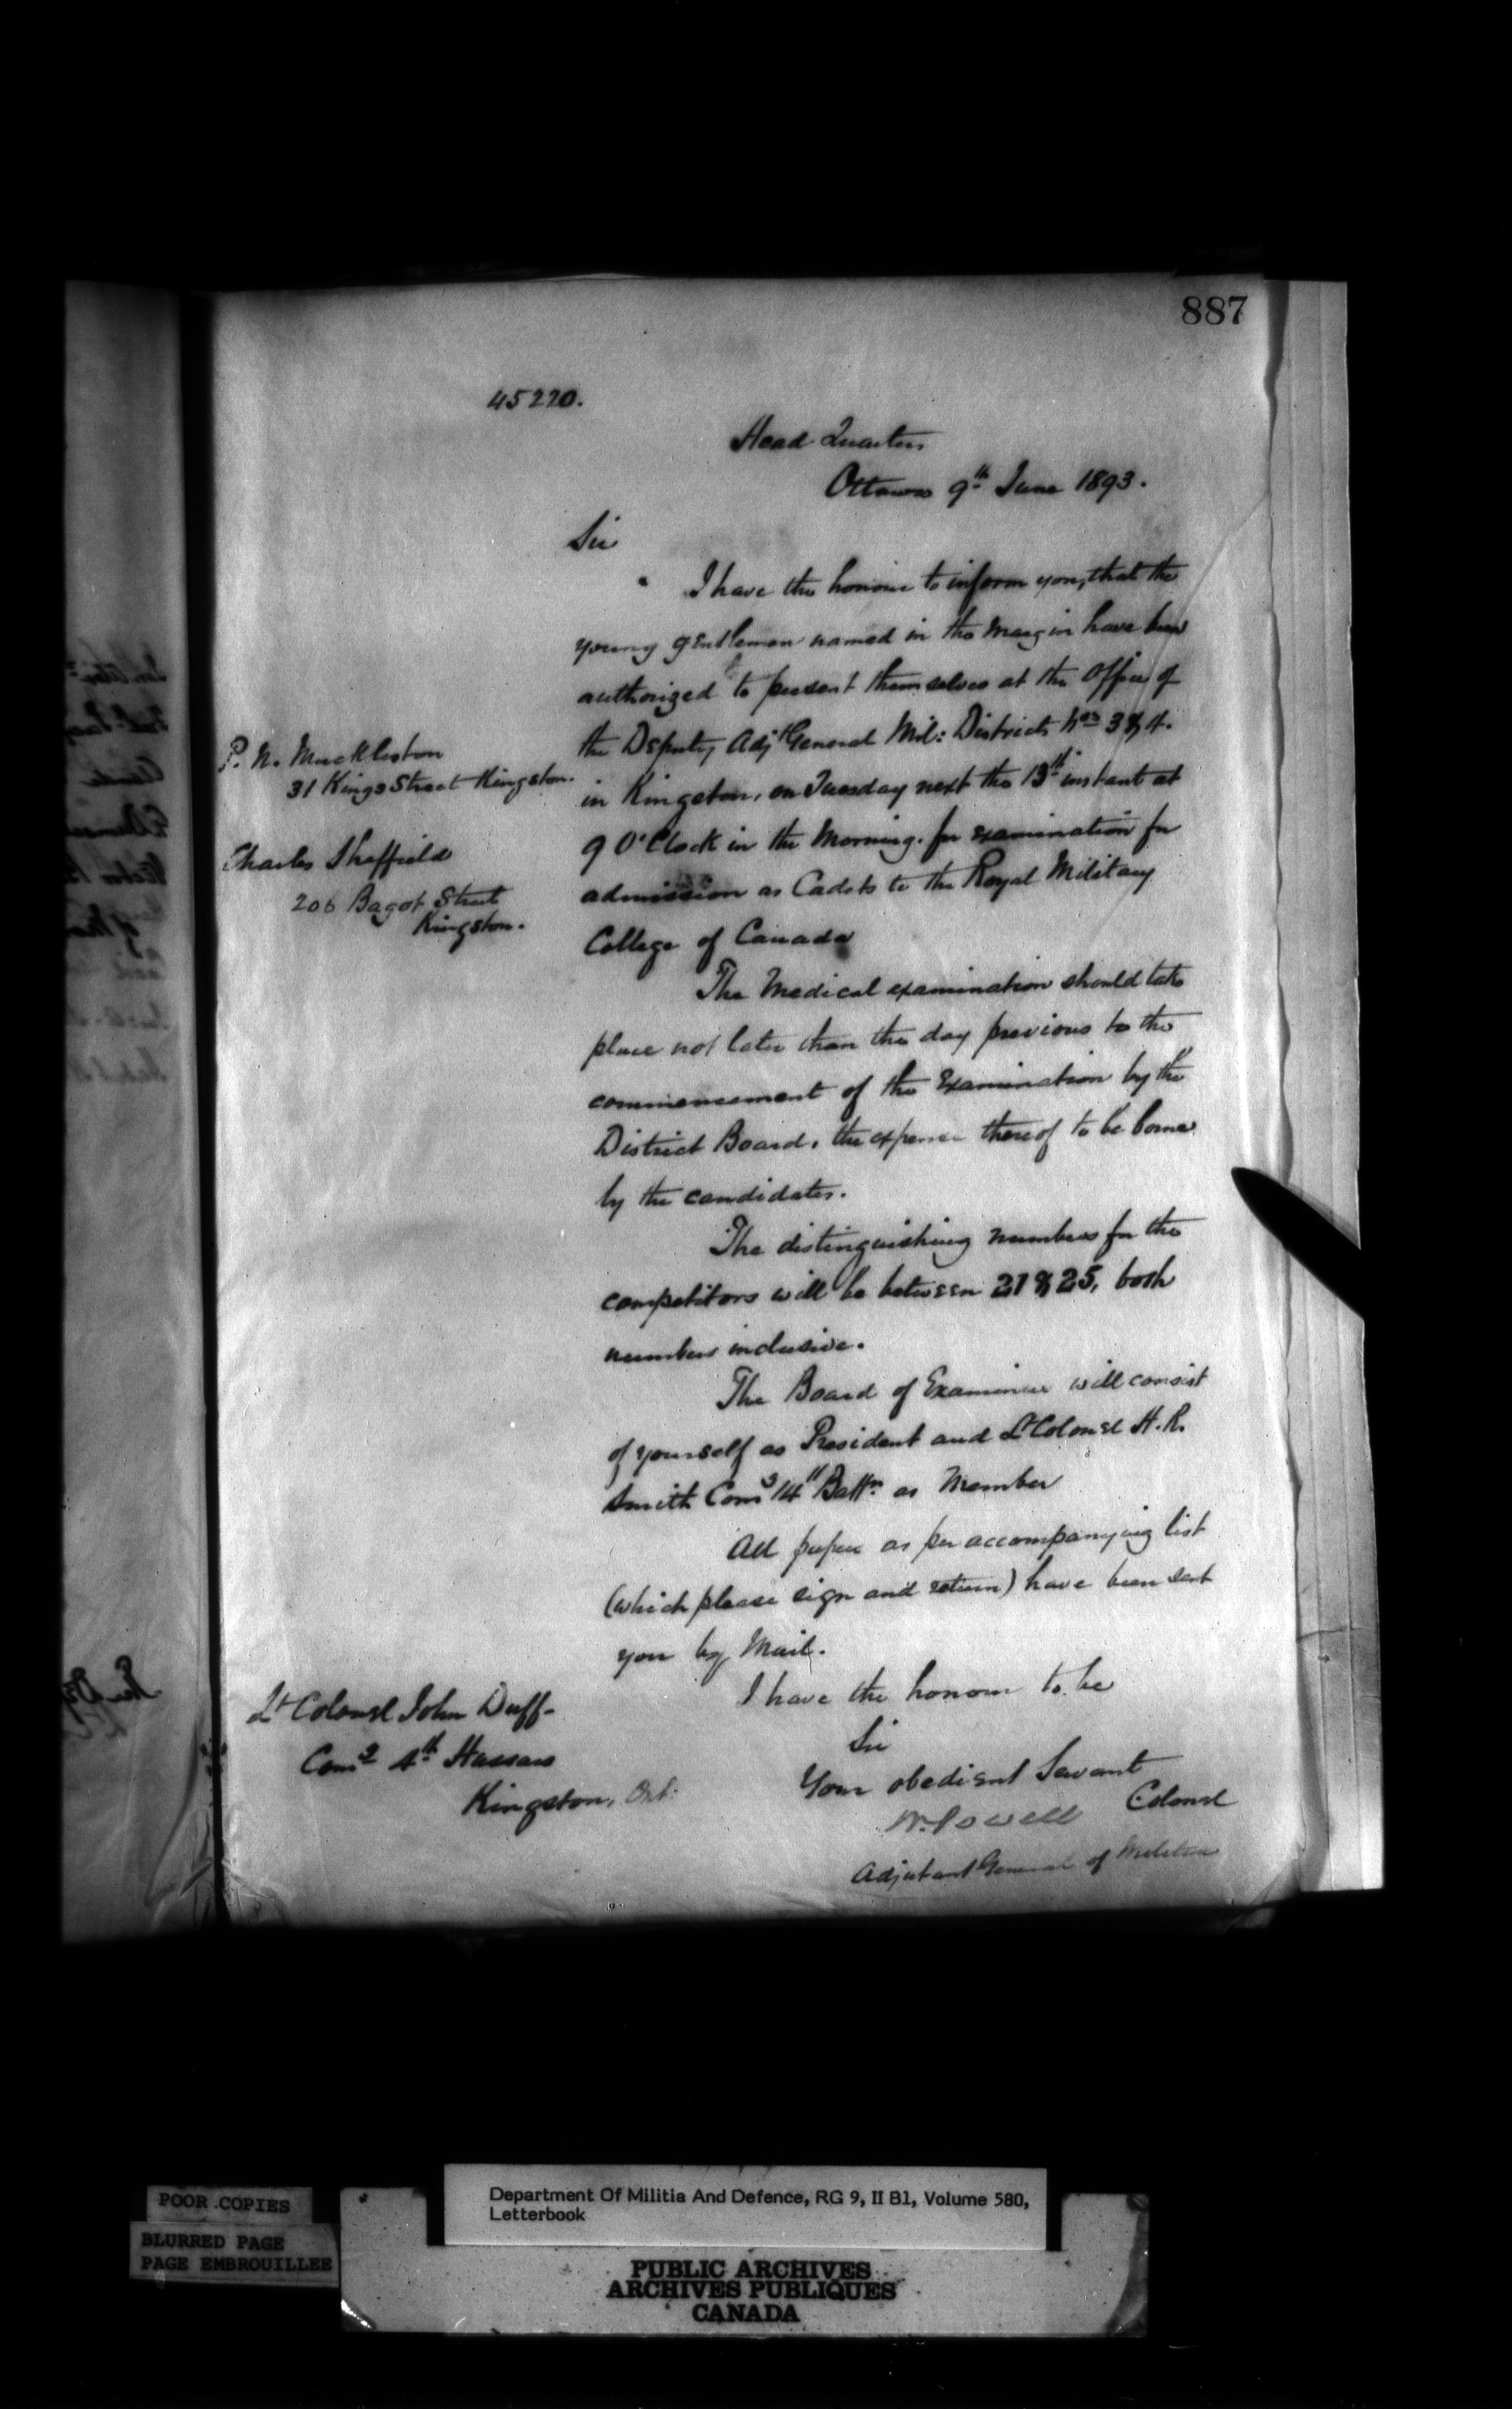 887
45220.
Head Quarters
Ottawa 9th June 1893.
Sir
I have the honour to inform you, that the
young gentlemen named in the Margin have been
authorized to present themselves at the Office of
the Deputy Adjt General Mil: Districts Nos 3 & 4.
P. N. Muckleston
31 Kings Street Kingston.
in Kingston, on Tuesday next the 13th instant at
9 O'Clock in the Morning. for examination for
Charles Sheffield
206 Bagot Street
Kingston.
admission as Cadets to the Royal Military
College of Canada
The Medical examination should take
place not later than the day previous to the
commencement of the Examination by the
District Board, the expense thereof to be borne
by the candidates.
The distinguishing numbers for the
competitors will be between 21 & 25, both
numbers inclusive.
The Board of Examiners will consist
of yourself as President and Lt Colonel H. R.
Smith Comg 14th Battn as Member
All papers as per accompanying list
(which please sign and return) have been sent
you by Mail.
I have the honour to be
Sir
Your obedient Servant
W. Powell Colonel
Adjutant General of Militia
Lt Colonel John Duff
Comg 4th Hussars
Kingston, Ont:
POOR COPIES
BLURRED PAGE
PAGE EMBROUILLEE
Department Of Militia And Defence, RG 9, II B1, Volume 580,
Letterbook
PUBLIC ARCHIVES
ARCHIVES PUBLIQUES
CANADA